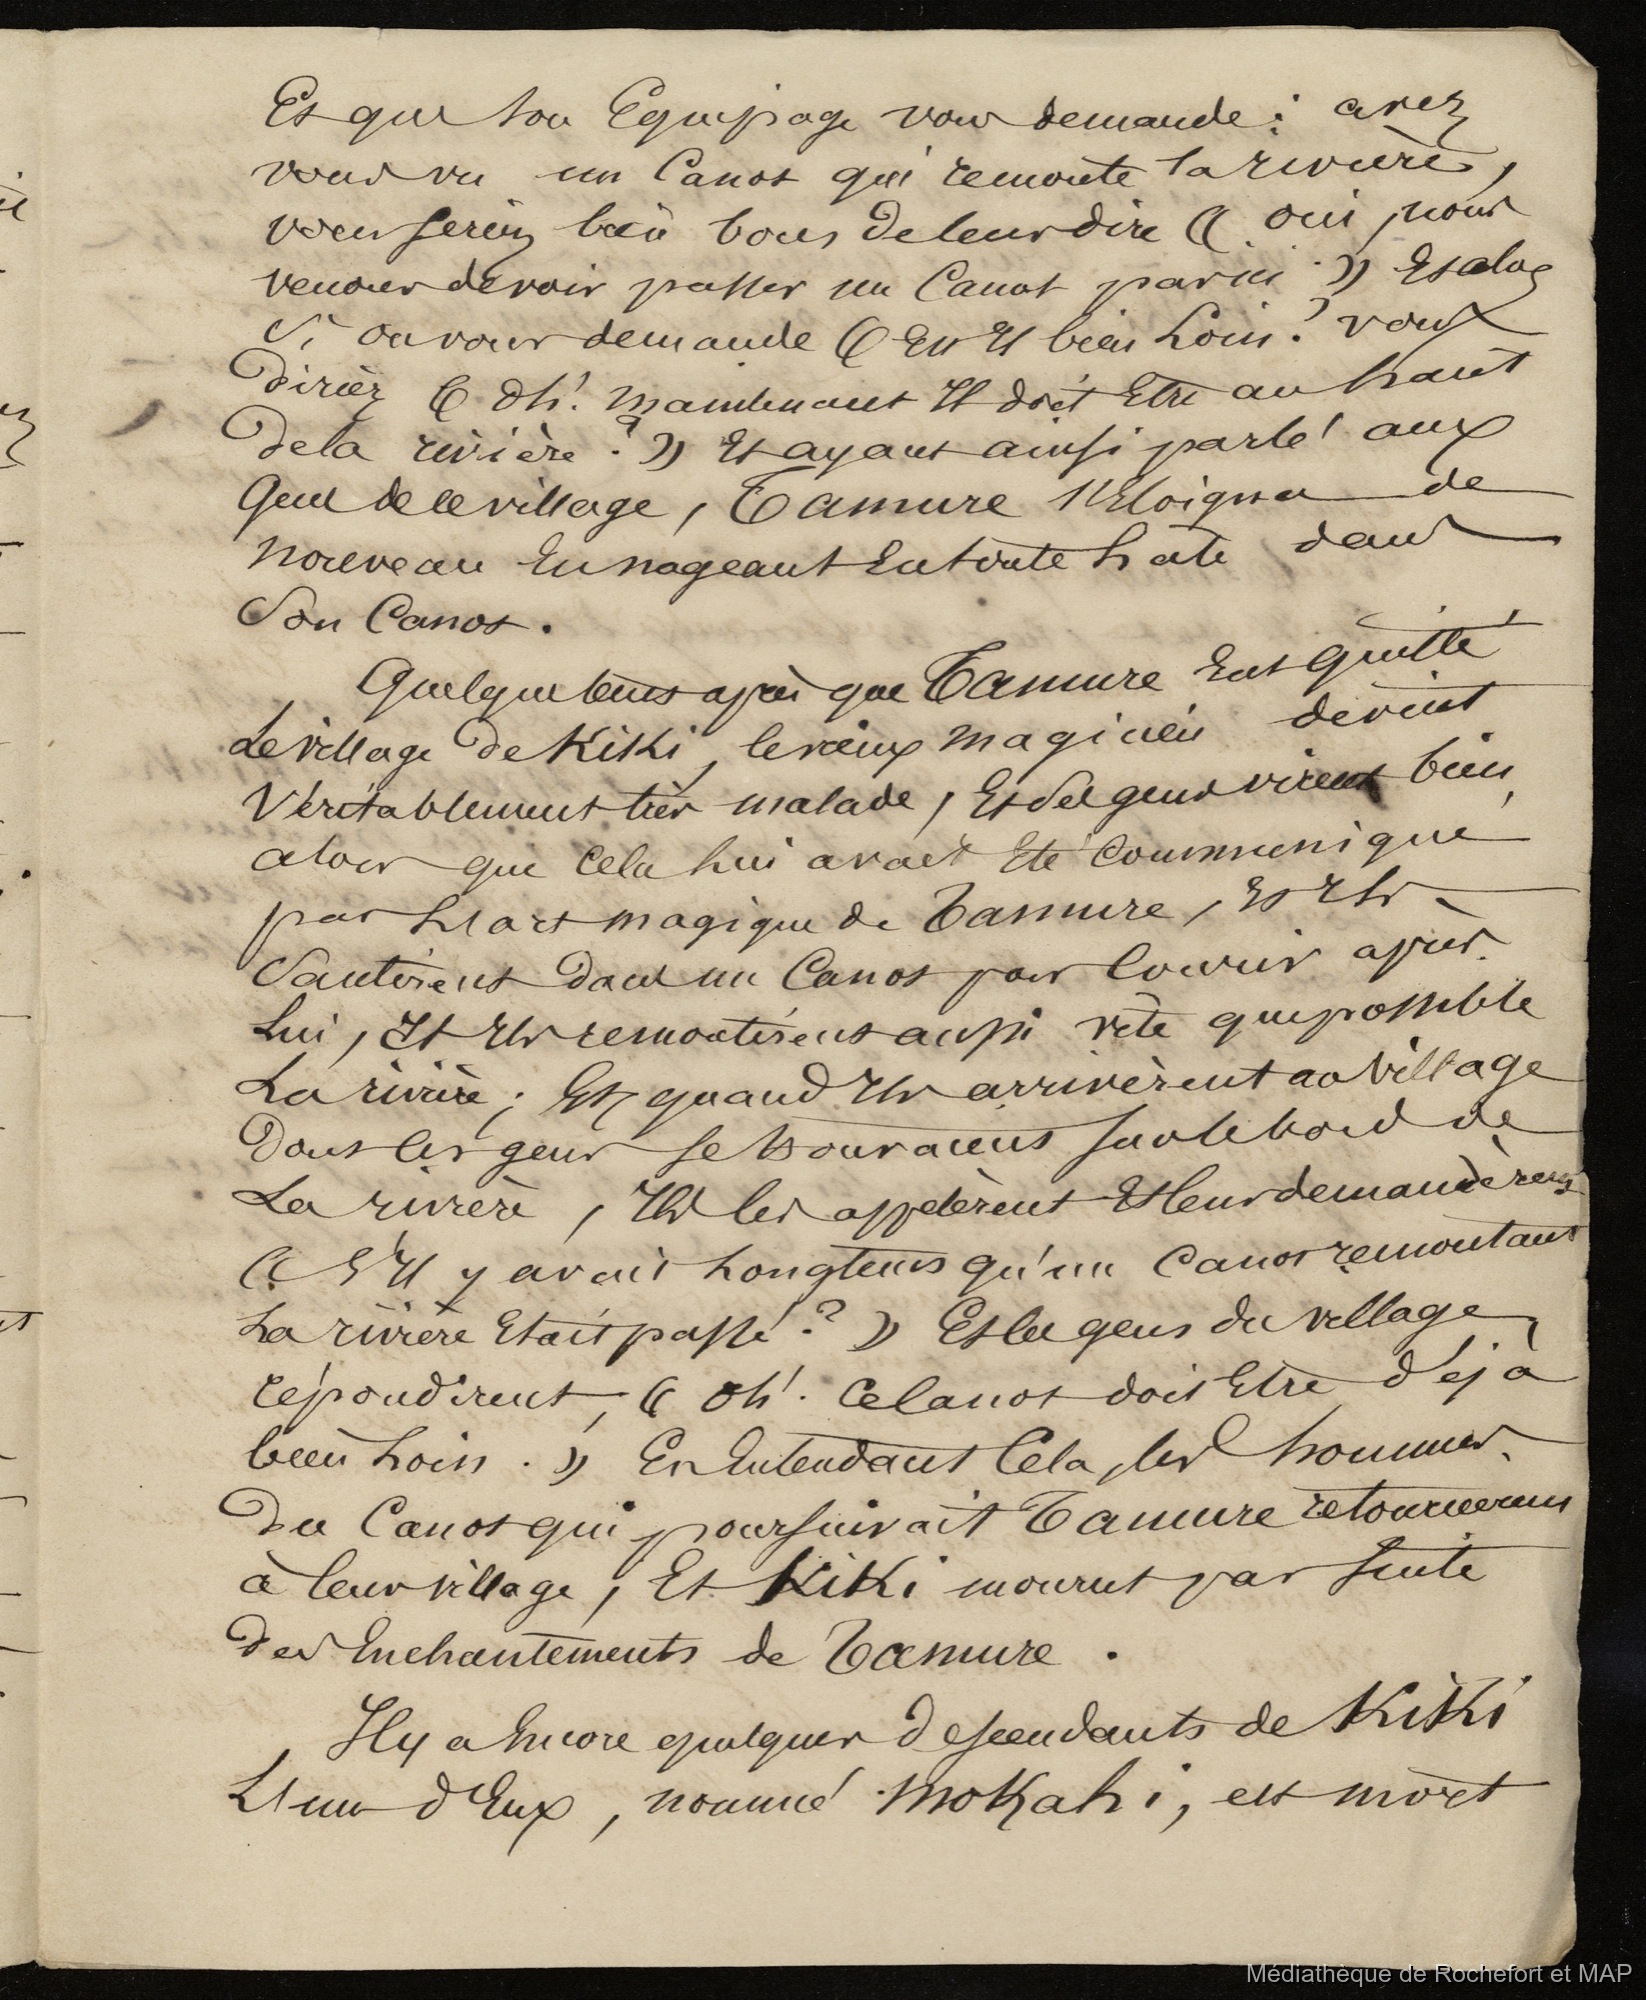 Et que son Equipage vous demande : avez
vous vu un Canot qui remonte la rivière,
vous seriez bien bons de leur dire (( oui, nous
venons de voir passer un Canot par ici . )) Et alors
Si on vous demande (( Est Il bien Loin ? vous
diriez (( Oh ! Maintenant Il doit Etre au haut
de la rivière ? )) Et ayant ainsi parlé aux
Gens de ce village, Tamure s'Eloigna de
nouveau En nageant En toute hate dans
Son Canot.
Quelque tems après que Tamure Eut quitté
Le village de Kiki, le vieux magicien devint
Véritablement très malade, Et ses gens virent bien,
alors que cela lui avait Eté Communiqué
par L'art magique de Tamure, Et Ils
Sautèrent dans un Canot pour Courir après
Lui, Et Ils remontèrent aussi vite que possible
La rivière ; Et quand Ils arrivèrent au village
Dont les gens se trouvaient sur le bord de
La rivière, Ils les appelèrent Et leur demandèrent
(( S'Il y avait Longtems qu'un Canot remontant
La rivière Etait passé ? )) Et les gens du village,
répondirent, (( Oh ! Ce Canot doit Etre déjà
bien Loin . )) En Entendant Cela, les hommes
du Canot qui poursuivait Tamure retournerent
à leur village, Et Kiki mourut par suite
des Enchantements de Tamure .
Il y a Encore quelques descendants de Kiki
L'un d'Eux, nommé Mokahi, est mort
Médiathèque de Rochefort et MAP